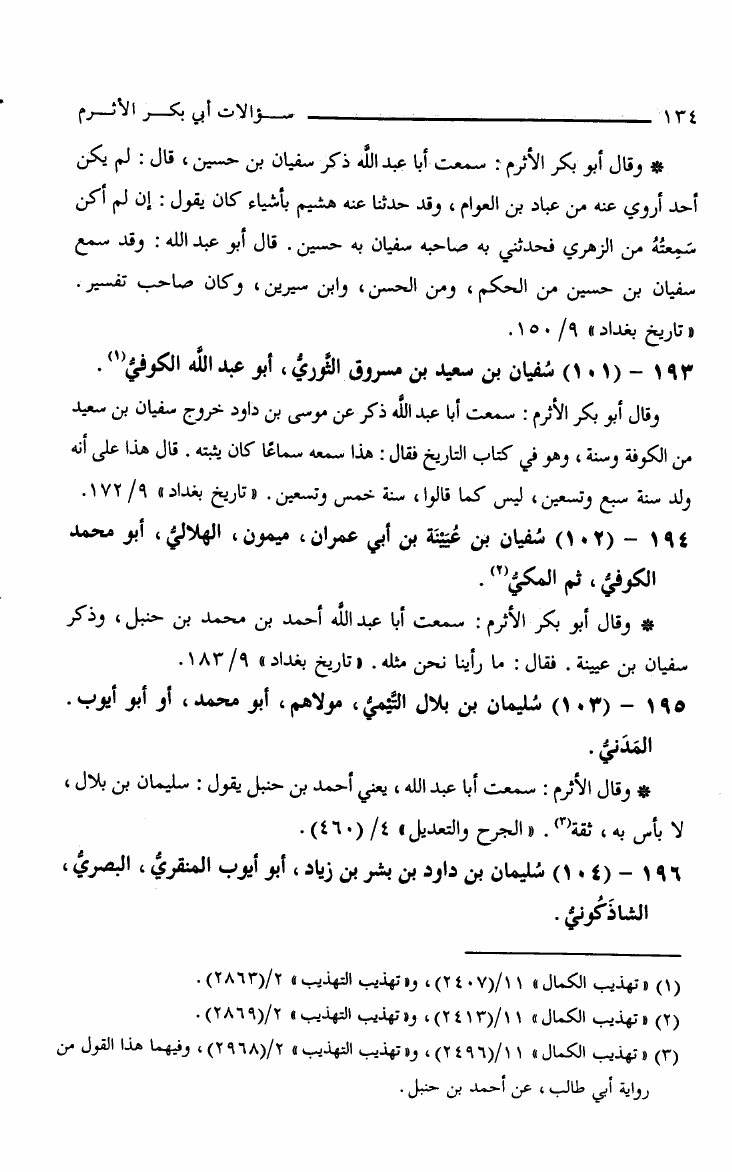 ١٣٤ ـــــــــــ سـؤالات أبي بكـر الأثـرم
* وقال أبو بكر الأثرم : سمعت أبا عبد اللَّه ذكر سفيان بن حسين ، قال : لم يكن
أحد أروي عنه من عباد بن العوام ، وقد حدثنا عنه هشيم بأشياء كان يقول : إن لم أكن
سَمِعتُهُ من الزهري فحدثني به صاحبه سفيان به حسين . قال أبو عبد الله : وقد سمع
سفيان بن حسين من الحكم ، ومن الحسن ، وابن سيرين ، وكان صاحب تفسير .
« تاريخ بغداد » ٩/ ١٥٠.
١٩٣ – (١٠١) سُفيان بن سعيد بن مسروق الثَّوريُّ ، أبو عبد اللَّه الكوفيُّ(١) .
وقال أبو بكر الأثرم : سمعت أبا عبد اللَّه ذكر عن موسى بن داود خروج سفيان بن سعيد
من الكوفة وسنة ، وهو في كتاب التاريخ فقال : هذا سمعه سماعًا كان يثبته . قال هذا على أنه
ولد سنة سبع وتسعين ، ليس كما قالوا ، سنة خمس وتسعين . « تاريخ بغداد » ٩/ ١٧٢.
١٩٤ – (١٠٢) سُفيان بن عُيَيْنَة بن أبي عمران ، ميمون ، الهلاليُّ ، أبو محمد
الكوفيُّ ، ثم المكيُّ(٢) .
* وقال أبو بكر الأثرم : سمعت أبا عبد اللَّه أحمد بن محمد بن حنبل ، وذكر
سفيان بن عيينة . فقال : ما رأينا نحن مثله . « تاريخ بغداد » ٩/ ١٨٣.
١٩٥ – (١٠٣) سُليمان بن بلال التَّيْميُّ ، مولاهم ، أبو محمد ، أو أبو أيوب .
المَدَنيُّ .
* وقال الأثرم : سمعت أبا عبد الله ، يعني أحمد بن حنبل يقول : سليمان بن بلال ،
لا بأس به ، ثقة(٣) . « الجرح والتعديل » ٤/ (٤٦٠).
١٩٦ – (١٠٤) سُليمان بن داود بن بشر بن زياد ، أبو أيوب المنقريُّ ، البصريُّ ،
الشاذَكُونيُّ .
(١) « تهذيب الكمال » ١١/(٢٤٠٧) ، و« تهذيب التهذيب » ٢/(٢٨٦٣).
(٢) « تهذيب الكمال » ١١/(٢٤١٣) ، و« تهذيب التهذيب » ٢/(٢٨٦٩).
(٣) « تهذيب الكمال » ١١/(٢٤٩٦) ، و« تهذيب التهذيب » ٢/(٢٩٦٨) ، وفيهما هذا القول من
رواية أبي طالب ، عن أحمد بن حنبل .